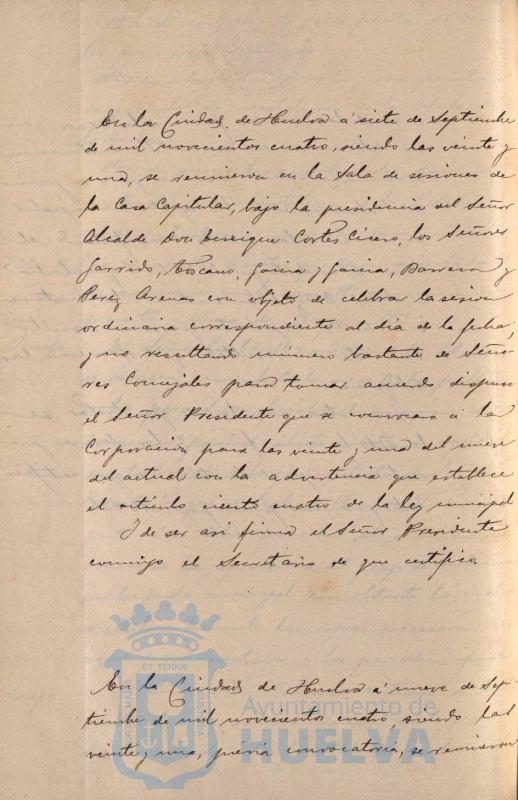 En la Ciudad de Huelva á siete de Septiembre
de mil novecientos cuatro, siendo las veinte y
una, se reunieron en la Sala de sesiones de
la Casa Capitular, bajo la presidencia del Señor
Alcalde Don Enrique Cortes Cicero, los Señores
Garrido, Toscano, Garcia y Garcia, Barrera y
Perez Arenas con objeto de celebrar la sesion
ordinaria correspondiente al dia de la fecha;
y no resultando número bastante de Seño-
res Concejales para tomar acuerdo dispuso
el Señor Presidente que se convocara á la
Corporacion para las veinte y una del nueve
del actual con la advertencia que establece
el artículo ciento cuatro de la ley municipal
Y de ser así firma el Señor Presidente
conmigo el Secretario de que certifico.
En la Ciudad de Huelva á nueve de Sep-
tiembre de mil novecientos cuatro, siendo las
veinte y una, previa convocatoria, se reunieron
ET TERRÆ
Ayuntamiento de
HUELVA